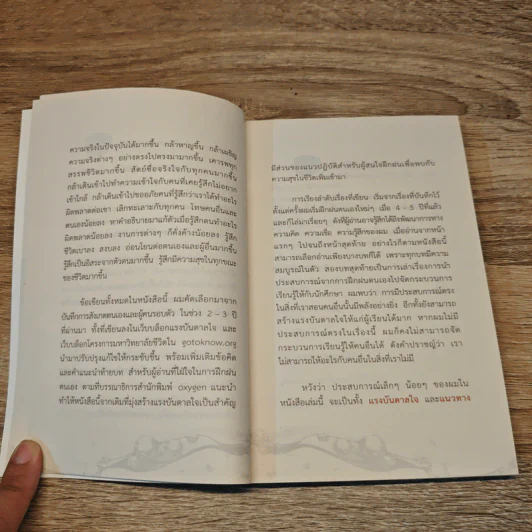 ความจริงในปัจจุบันได้มากขึ้น กล้าหาญขึ้น กล้าเผชิญ
ความจริงต่างๆ อย่างตรงไปตรงมามากขึ้น เคารพทุก
สรรพชีวิตมากขึ้น สัตย์ซื่อจริงใจกับทุกคนมากขึ้น
กล้าเดินเข้าไปทำความเข้าใจกับคนที่เคยรู้สึกไม่อยาก
เข้าใกล้ กล้าเดินเข้าไปขออภัยคนที่รู้สึกว่าเราได้ทำอะไร
ผิดพลาดต่อเขา เลิกทะเลาะกับทุกคน โทษคนอื่นและ
ตนเองน้อยลง หาคำอธิบายมาแก้ตัวเมื่อรู้สึกตนทำอะไร
ผิดพลาดน้อยลง งานการต่างๆ ก็คั่งค้างน้อยลง รู้สึก
ชีวิตเบาลง สงบลง อ่อนโยนต่อตนเองและผู้อื่นมากขึ้น
รู้สึกเป็นอิสระจากตัวตนมากขึ้น รู้สึกมีความสุขในทุกขณะ
ของชีวิตมากขึ้น
ข้อเขียนทั้งหมดในหนังสือนี้ ผมคัดเลือกมาจาก
บันทึกการสังเกตตนเองและผู้คนรอบตัว ในช่วง 2 – 3 ปี
ที่ผ่านมา ทั้งที่เขียนลงในเว็บบล็อกแรงบันดาลใจ และ
เว็บบล็อกโครงการมหาวิทยาลัยชีวิตใน gotoknow.org
นำมาปรับปรุงแก้ไขให้กระชับขึ้น พร้อมเพิ่มเติมข้อคิด
และคำแนะนำท้ายบท สำหรับผู้อ่านที่ใฝ่ใจในการฝึกฝน
ตนเอง ตามที่บรรณาธิการสำนักพิมพ์ oxygen แนะนำ
ทำให้หนังสือนี้จากเดิมที่มุ่งสร้างแรงบันดาลใจเป็นสำคัญ
มีส่วนของแนวปฏิบัติสำหรับผู้สนใจฝึกฝนเพื่อพบกับ
ความสุขในชีวิตเพิ่มเข้ามา
การเรียงลำดับเรื่องที่เขียน เริ่มจากเรื่องที่บันทึกไว้
ตั้งแต่ครั้งผมเริ่มฝึกฝนตนเองใหม่ๆ เมื่อ 4 – 5 ปีที่แล้ว
และก็ไล่มาเรื่อยๆ ดังที่ผู้อ่านอาจรู้สึกได้ถึงพัฒนาการทาง
ความคิด ความเชื่อ ความรู้สึกของผม เมื่ออ่านจากหน้า
แรกๆ ไปจนถึงหน้าสุดท้าย อย่างไรก็ตามหนังสือนี้
สามารถเลือกอ่านเพียงบางบทก็ได้ เพราะทุกบทมีความ
สมบูรณ์ในตัว สองบทสุดท้ายเป็นการเล่าเรื่องการนำ
ประสบการณ์จากการฝึกฝนตนเองไปจัดกระบวนการ
เรียนรู้ให้กับนักศึกษา ผมพบว่า การมีประสบการณ์ตรง
ในสิ่งที่เราสอนคนอื่นนั้นมีพลังอย่างยิ่ง อีกทั้งยังสามารถ
สร้างแรงบันดาลใจให้แก่ผู้เรียนได้มาก หากผมไม่มี
ประสบการณ์ตรงในเรื่องนี้ ผมก็คงไม่สามารถจัด
กระบวนการเรียนรู้ให้คนอื่นได้ ดังคำปราชญ์ว่า เรา
ไม่สามารถให้อะไรกับคนอื่นในสิ่งที่เราไม่มี
หวังว่า ประสบการณ์เล็กๆ น้อยๆ ของผมใน
หนังสือเล่มนี้ จะเป็นทั้ง แรงบันดาลใจ และแนวทาง